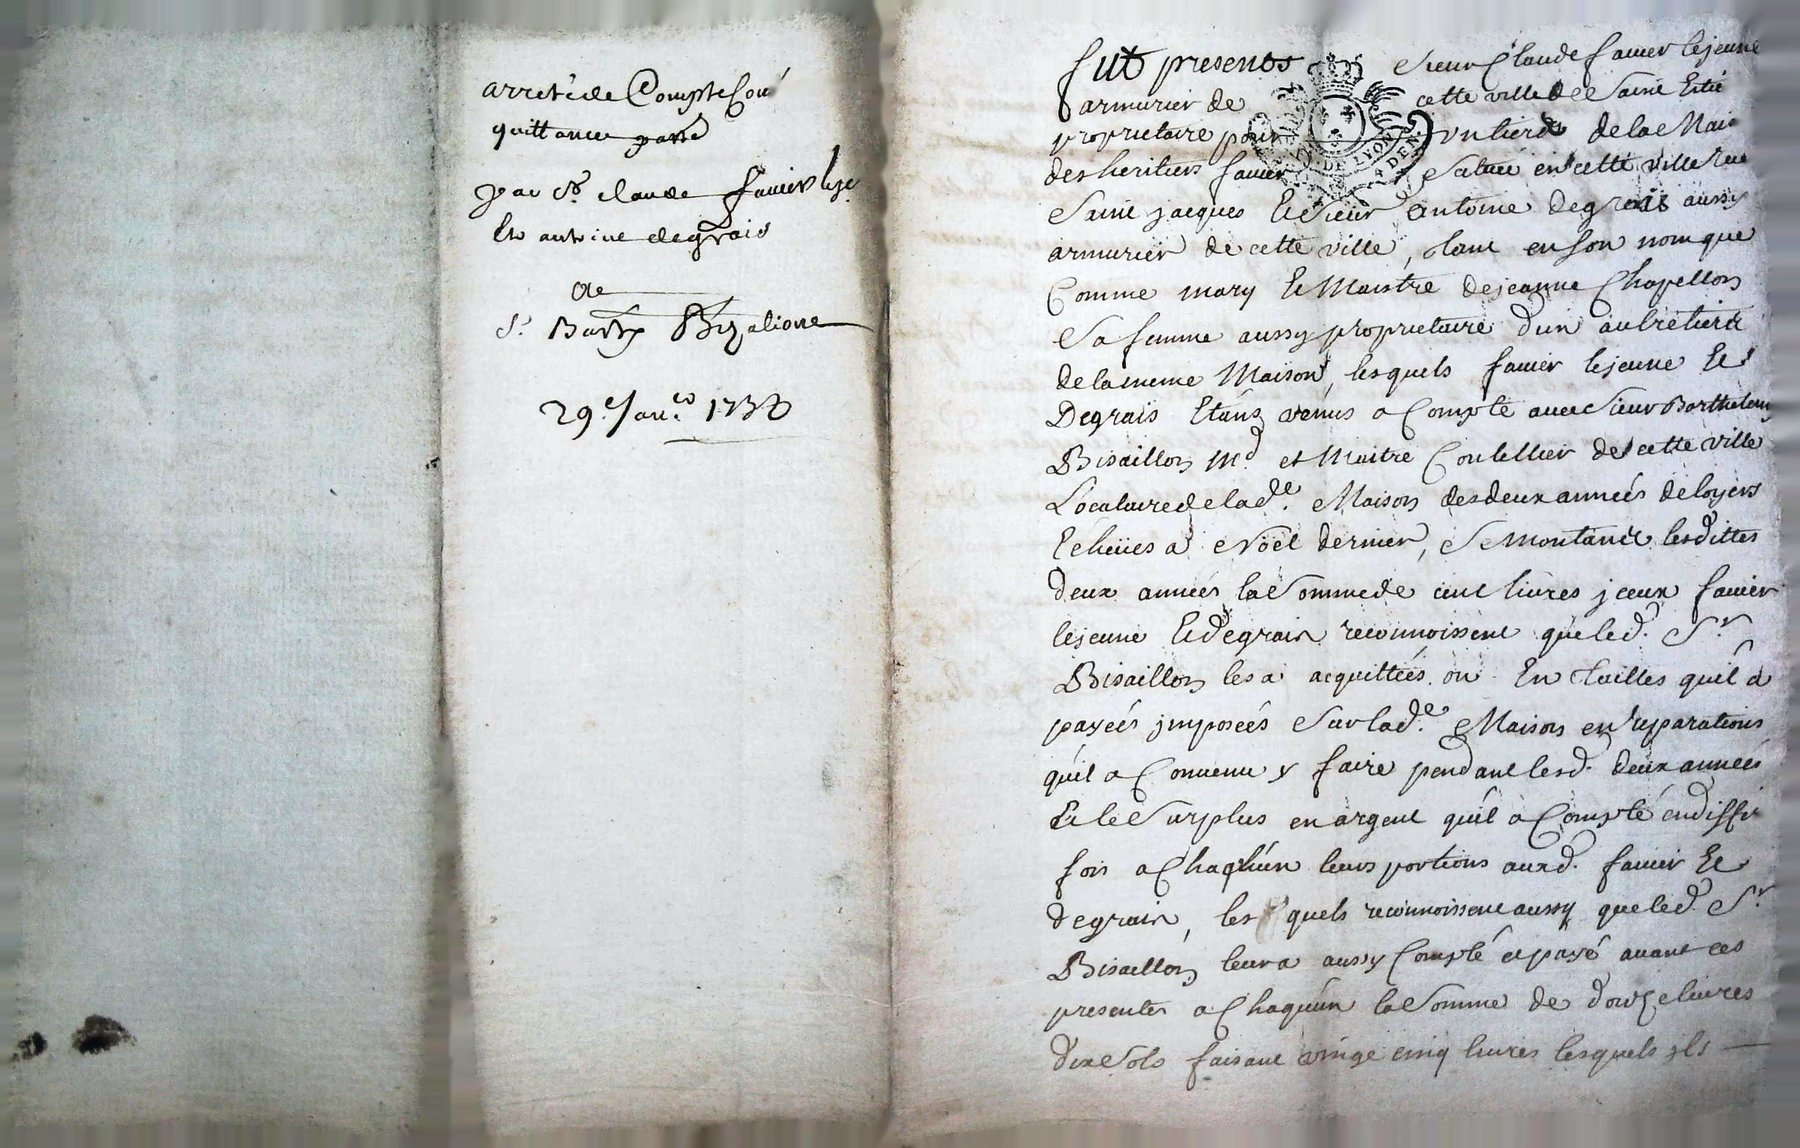 arrêté de Compte Con
quittance passé
par Sr. claude favier leje
Et antoine degrais
a
Sr. Barty Bizalione
29e. Janv.er 173
fut presents Sieur Claude favier lejeune
armurier de cette ville de Saint Etie
proprietaire pour un tierd de la Mais
des heritiers favier Scituée en cette ville rue
Saint jacques Et Sieur Antoine degrais aussy
armurier de cette ville, tant en son nom que
Comme mary Et Maistre de jeanne Chapellon
Sa femme aussy proprietaire d'un autre tierd
de la meme Maison, lesquels favier lejeune Et
Degrais Etans venus a Compte avec Sieur Barthelemy
Bisaillon Md. et Maitre Coutellier de cette ville
Locataire de lade. Maison des deux années de loyers
Echeües a Noël dernier, Se montant lesdittes
deux années la Somme de cent livres jceux favier
lejeune Et degrais reconnoissent que led. Sr.
Bisaillon les a acquittées ou En tailles quil a
payées jmposées Sur lade. Maison en reparations
quil a Convenu y faire pendant lesd. deux années
Et le Surplus en argent quil a Compté en diffe
fois a Chaquun leurs portions auxd. favier Et
degrais, lesquels reconnoissent aussy que led. Sr.
Bisaillon leur a aussy Compté et payé avant ces
presentes a Chaquun la Somme de douze livres
dix Sols faisant vingt cinq livres lesquels jls
DE LYON